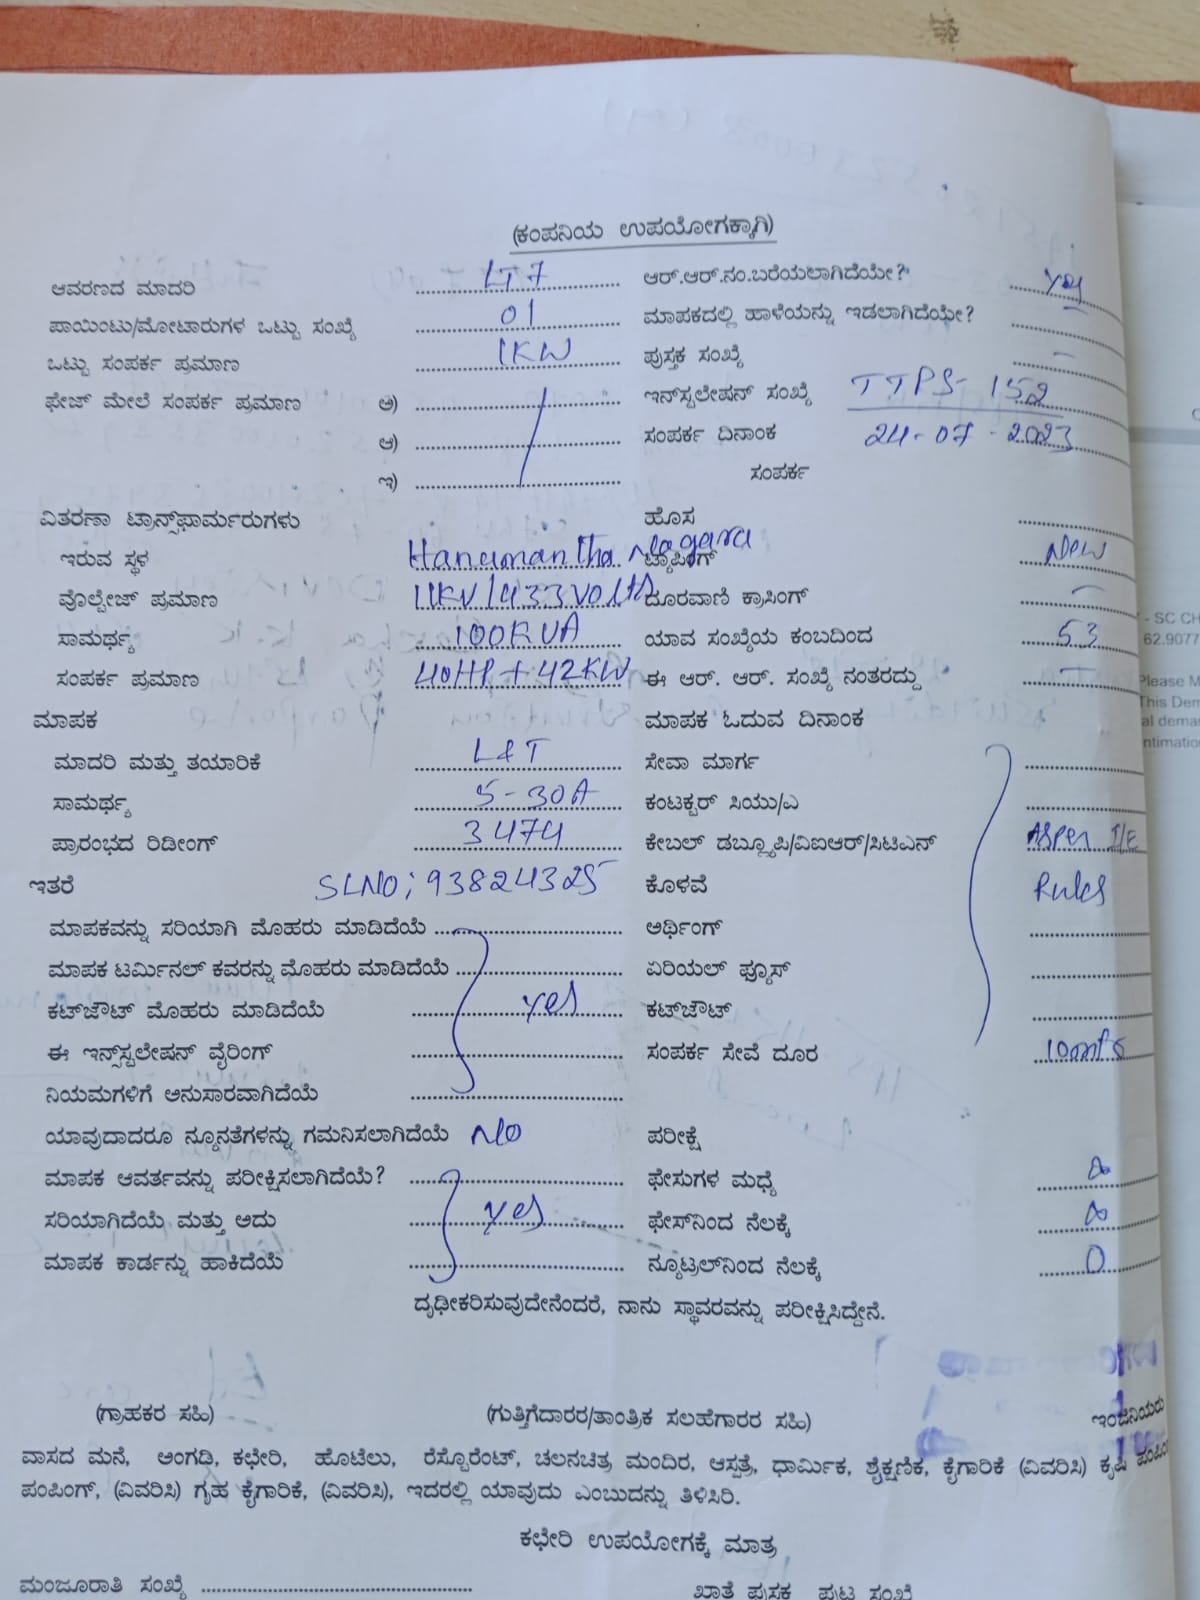 (ಕಂಪನಿಯ ಉಪಯೋಗಕ್ಕಾಗಿ)
ಆವರಣದ ಮಾದರಿ LT7 ಆರ್.ಆರ್.ನಂ.ಬರೆಯಲಾಗಿದೆಯೇ? yes
ಪಾಯಿಂಟು/ಮೋಟಾರುಗಳ ಒಟ್ಟು ಸಂಖ್ಯೆ 01 ಮಾಪಕದಲ್ಲಿ ಹಾಳೆಯನ್ನು ಇಡಲಾಗಿದೆಯೇ?
ಒಟ್ಟು ಸಂಪರ್ಕ ಪ್ರಮಾಣ 1KW ಪುಸ್ತಕ ಸಂಖ್ಯೆ -
ಫೇಜ್ ಮೇಲೆ ಸಂಪರ್ಕ ಪ್ರಮಾಣ ಅ) ಇನ್‌ಸ್ಟಲೇಷನ್ ಸಂಖ್ಯೆ TTPS-152
ಆ) ಸಂಪರ್ಕ ದಿನಾಂಕ 24-07-2023
ಇ) ಸಂಪರ್ಕ
ವಿತರಣಾ ಟ್ರಾನ್ಸ್‌ಫಾರ್ಮರುಗಳು ಹೊಸ
ಇರುವ ಸ್ಥಳ Hanumantha Nagara ಟ್ಯಾಪಿಂಗ್ New
ವೊಲ್ಟೇಜ್ ಪ್ರಮಾಣ 11KV/433Volts ದೂರವಾಣಿ ಕ್ರಾಸಿಂಗ್ -
ಸಾಮರ್ಥ್ಯ 100KVA ಯಾವ ಸಂಖ್ಯೆಯ ಕಂಬದಿಂದ 53
ಸಂಪರ್ಕ ಪ್ರಮಾಣ 40HP+42KW ಈ ಆರ್. ಆರ್. ಸಂಖ್ಯೆ ನಂತರದ್ದು -
ಮಾಪಕ ಮಾಪಕ ಓದುವ ದಿನಾಂಕ
ಮಾದರಿ ಮತ್ತು ತಯಾರಿಕೆ L&T ಸೇವಾ ಮಾರ್ಗ
ಸಾಮರ್ಥ್ಯ 5-30A ಕಂಟಕ್ಟರ್ ಸಿಯು/ಎ
ಪ್ರಾರಂಭದ ರಿಡೀಂಗ್ 3474 ಕೇಬಲ್ ಡಬ್ಲ್ಯೂಪಿ/ವಿಐಆರ್/ಸಿಟಿಎನ್ Asper I/E
ಇತರೆ SLNO; 93824325 ಕೊಳವೆ Rules
ಮಾಪಕವನ್ನು ಸರಿಯಾಗಿ ಮೊಹರು ಮಾಡಿದೆಯೆ ಅರ್ಥಿಂಗ್
ಮಾಪಕ ಟರ್ಮಿನಲ್ ಕವರನ್ನು ಮೊಹರು ಮಾಡಿದೆಯೆ ಏರಿಯಲ್ ಫ್ಯೂಸ್
ಕಟ್‌ಔಟ್ ಮೊಹರು ಮಾಡಿದೆಯೆ yes ಕಟ್‌ಔಟ್
ಈ ಇನ್ಸ್‌ಸ್ಟಲೇಷನ್ ವೈರಿಂಗ್ ಸಂಪರ್ಕ ಸೇವೆ ದೂರ 10mts
ನಿಯಮಗಳಿಗೆ ಅನುಸಾರವಾಗಿದೆಯೆ
ಯಾವುದಾದರೂ ನ್ಯೂನತೆಗಳನ್ನು ಗಮನಿಸಲಾಗಿದೆಯೆ No ಪರೀಕ್ಷೆ
ಮಾಪಕ ಆವರ್ತವನ್ನು ಪರೀಕ್ಷಿಸಲಾಗಿದೆಯೆ? ಫೇಸುಗಳ ಮಧ್ಯೆ ∞
ಸರಿಯಾಗಿದೆಯೆ ಮತ್ತು ಅದು yes ಫೇಸ್‌ನಿಂದ ನೆಲಕ್ಕೆ ∞
ಮಾಪಕ ಕಾರ್ಡನ್ನು ಹಾಕಿದೆಯೆ ನ್ಯೂಟ್ರಲ್‌ನಿಂದ ನೆಲಕ್ಕೆ 0
ದೃಢೀಕರಿಸುವುದೇನೆಂದರೆ, ನಾನು ಸ್ಥಾವರವನ್ನು ಪರೀಕ್ಷಿಸಿದ್ದೇನೆ.
(ಗ್ರಾಹಕರ ಸಹಿ) (ಗುತ್ತಿಗೆದಾರರ/ತಾಂತ್ರಿಕ ಸಲಹೆಗಾರರ ಸಹಿ) ಇಂಜಿನಿಯರು
ವಾಸದ ಮನೆ, ಅಂಗಡಿ, ಕಛೇರಿ, ಹೊಟೆಲು, ರೆಸ್ಟೊರೆಂಟ್, ಚಲನಚಿತ್ರ ಮಂದಿರ, ಆಸ್ಪತ್ರೆ, ಧಾರ್ಮಿಕ, ಶೈಕ್ಷಣಿಕ, ಕೈಗಾರಿಕೆ (ವಿವರಿಸಿ) ಕೃಷಿ ಪಂಪಿಂಗ್
ಪಂಪಿಂಗ್, (ವಿವರಿಸಿ) ಗೃಹ ಕೈಗಾರಿಕೆ, (ವಿವರಿಸಿ), ಇದರಲ್ಲಿ ಯಾವುದು ಎಂಬುದನ್ನು ತಿಳಿಸಿರಿ.
ಕಛೇರಿ ಉಪಯೋಗಕ್ಕೆ ಮಾತ್ರ
ಮಂಜೂರಾತಿ ಸಂಖ್ಯೆ ಖಾತೆ ಪುಸ್ತಕ ಪುಟ ಸಂಖ್ಯೆ
- SC CH
62.9077
Please M
This Dem
al dema
ntimatio